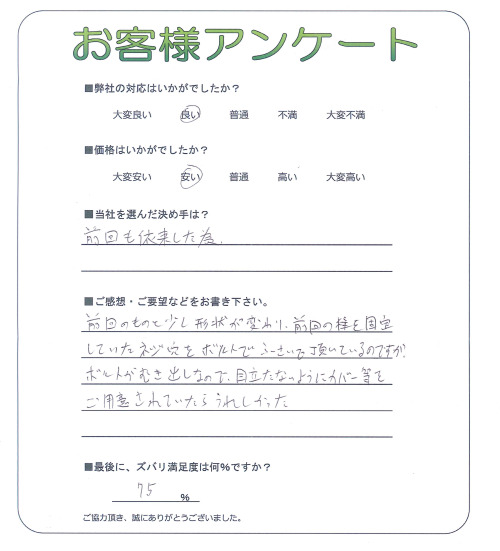 お客様アンケート
■弊社の対応はいかがでしたか？
大変良い　良い　普通　不満　大変不満
■価格はいかがでしたか？
大変安い　安い　普通　高い　大変高い
■当社を選んだ決め手は？
前回も依来した為、
■ご感想・ご要望などをお書き下さい。
前回のものと少し形状が変わり、前回の様を固定
していたネジ穴をボルトでふさいで頂いているのですが、
ボルトがむき出しなので、目立たないようにカバー等を
ご用意されていたらうれしかった
■最後に、ズバリ満足度は何%ですか？
75 %
ご協力頂き、誠にありがとうございました。